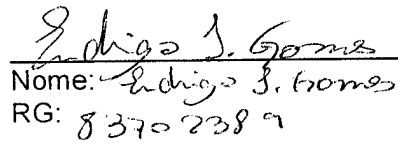 Endigo S. Gomes
Nome: Endigo S. Gomes
RG: 83702389